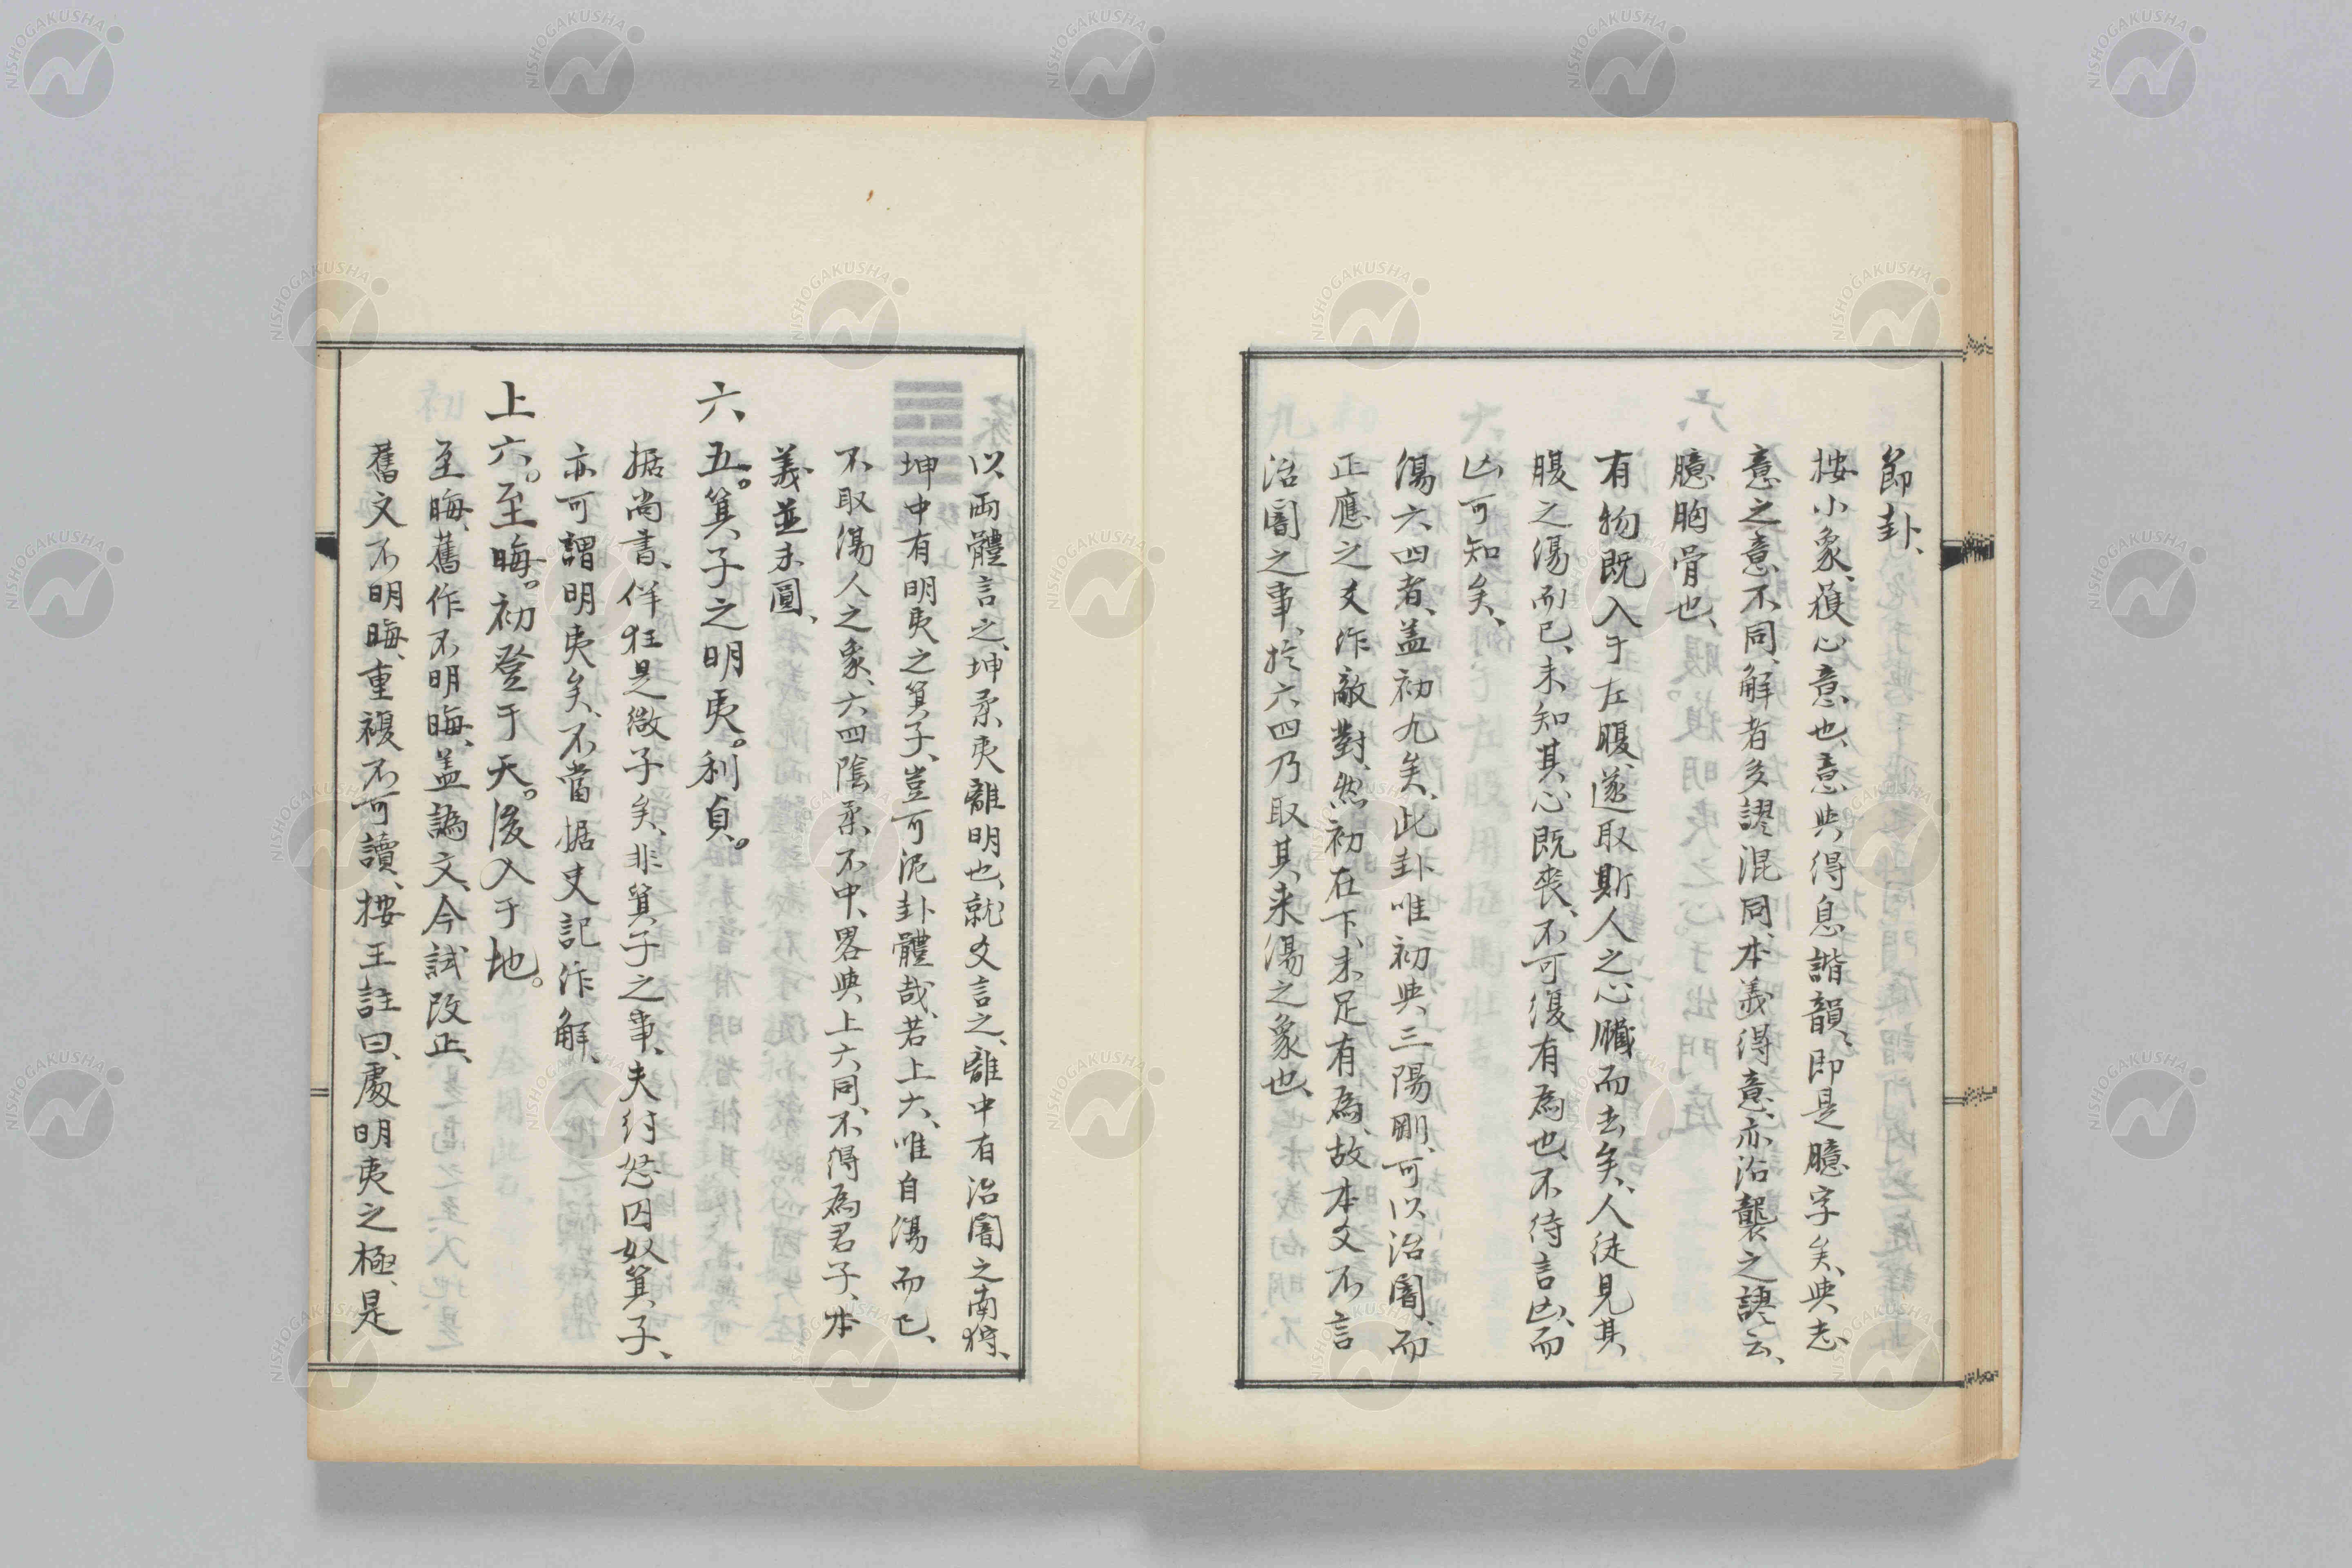 節卦、
按小象、獲心意也、意與得息諧韻、即是臆字矣、與志
意之意不同、解者多謬混同、本義得意、亦沿襲之誤云、
臆胸骨也、
有物既入于左腹、遂取斯人之心臓而去矣、人徒見其
腹之傷而已、未知其心既喪、不可復有為也、不待言凶、而
凶可知矣、
傷六四者、盖初九矣、此卦唯初與三陽剛、可以治闇、而
正應之爻作敵對、然初在下、未足有為、故本爻不言
治闇之事、於六四乃取其来傷之象也、
以兩體言之、坤柔夷離明也、就爻言之、離中有治闇之南狩、
坤中有明夷之箕子、豈可泥卦體哉、若上六、唯自傷而已、
不取傷人之象、六四陰柔不中、畧與上六同、不得為君子、本
義並未圓、
六五。箕子之明夷。利貞。
据尚書、佯狂是微子矣、非箕子之事、夫紂怒囚奴箕子、
亦可謂明夷矣、不當据史記作解、
上六。至晦。初登于天。後入于地。
至晦、舊作不明晦、盖譌文、今試改正、
舊文不明晦、重複不可讀、按王註曰、處明夷之極、是